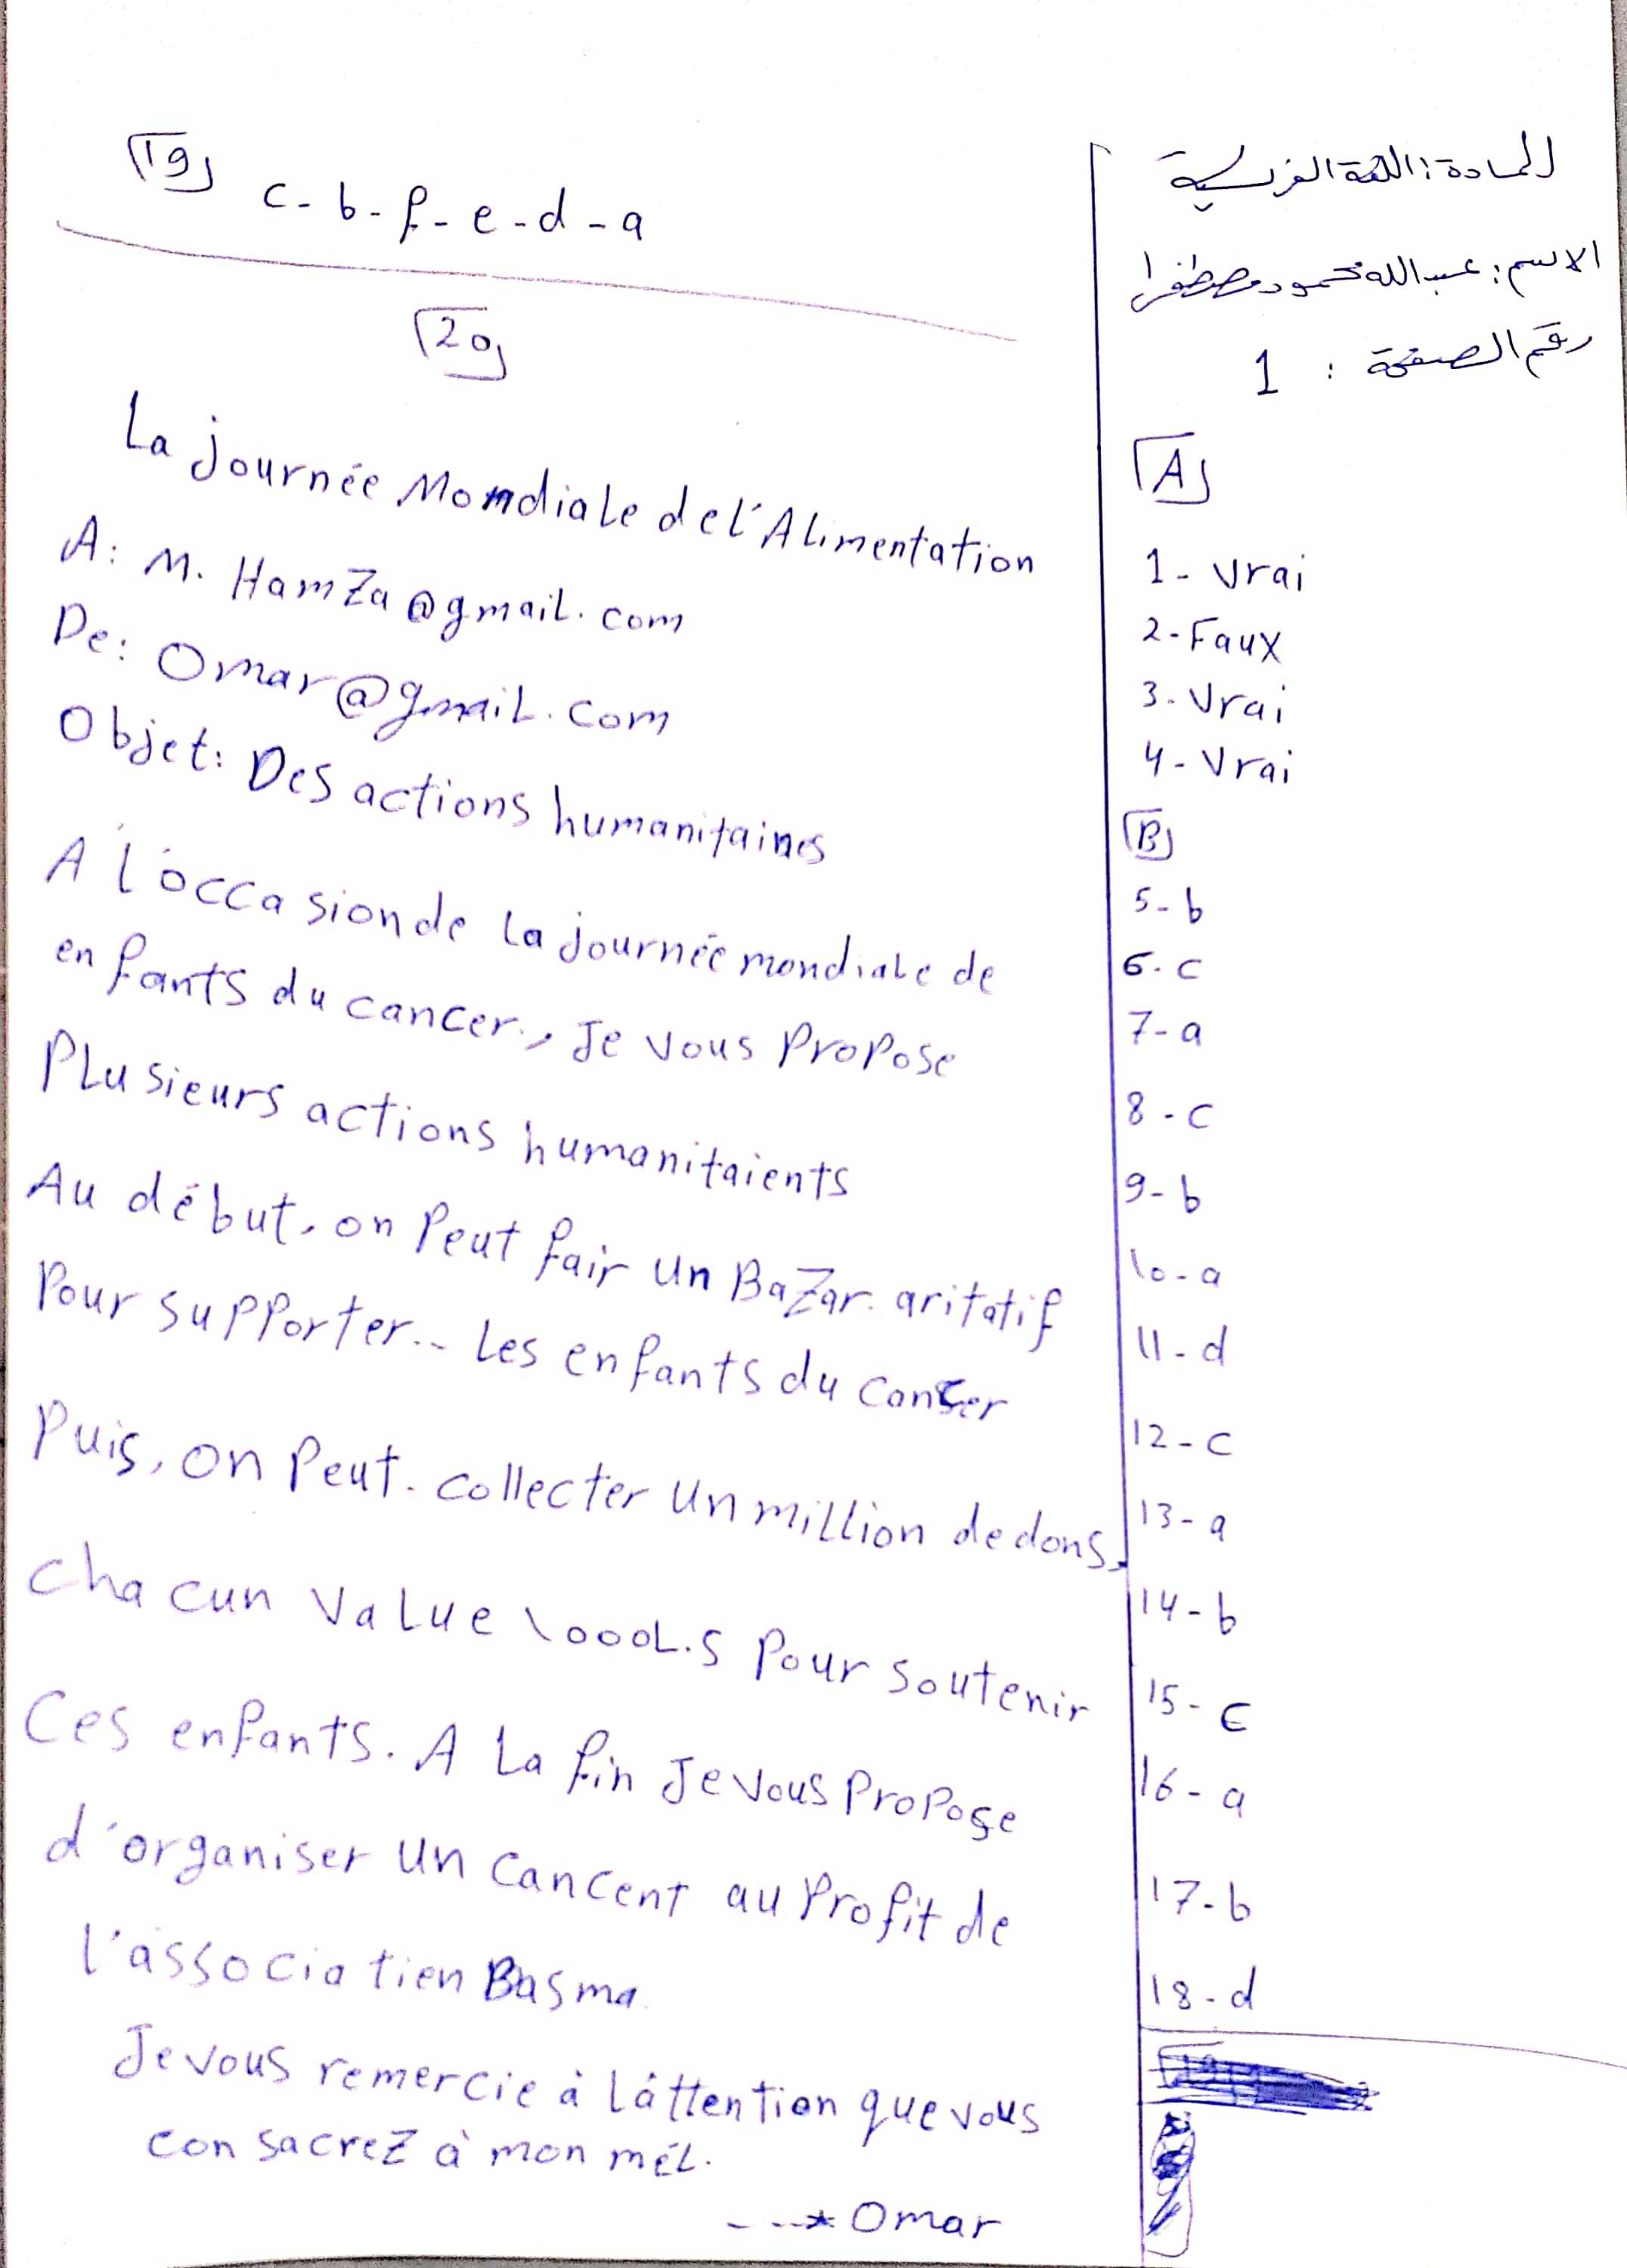 المادة: اللغة الفرنسية
الاسم: عبدالله محمود مصطفا
رقم الصفحة : 1
A
1- Vrai
2- Faux
3- Vrai
4- Vrai
B
5- b
6- c
7- a
8- c
9- b
10- a
11- d
12- c
13- a
14- b
15- c
16- a
17- b
18- d
19
c- b- f- e- d- a
20
La journée Mondiale de l'Alimentation
A: M. HamZa@gmail.com
De: Omar@gmail.com
Objet: Des actions humanitaines
A l'occasion de la journée mondiale de
enfants du cancer., Je vous Propose
Plusieurs actions humanitaients
Au début, on Peut fair un BaZar. aritatif
Pour supporter.. Les enfants du cancer
Puis, on Peut. collecter un million de dons,
chacun value 1000L.S Pour soutenir
Ces enfants. A La fin Je vous Propose
d'organiser un cancent au Profit de
l'associatien Basma.
Je vous remercie à l'áttention que vous
consacreZ à mon mél.
- - -* Omar